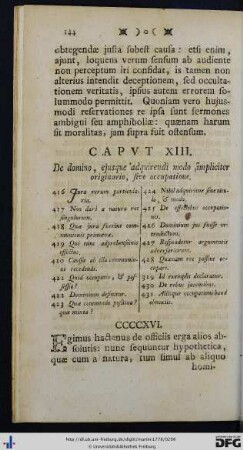 144
obtegendæ justa subest causa: etsi enim,
ajunt, loquens verum sensum ab audiente
non perceptum iri confidat, is tamen non
alterius intendit deceptionem, sed occulta-
tionem veritatis, ipsius autem errorem so-
lummodo permittit. Quoniam vero hujus-
modi reservationes re ipsa sunt sermones
ambigui seu amphiboliæ: quænam harum
sit moralitas, jam supra fuit ostensum.
CAPVT XIII.
De dominio, ejusque adquirendi modo simpliciter
originario, sive occupatione.
416 Jura rerum particula-
ria.
417 Non dari a natura res
singulorum.
418 Quæ jura fuerint com-
munionis primævæ.
419 Qui nunc adprehensionis
effectus.
420 Causæ ab illa communi-
one recedendi.
421 Quid occupatio, & pos-
sessio?
422 Dominium definitur.
423 Quæ commoda positiva?
quæ mixta?
424 Nihil adquiritur sine titu-
lo, & modo.
425 De effectibus occupatio-
nis.
426 Dominium jus fuisse in-
troductum.
427 Respondetur argumentis
adversariorum.
428 Quænam res possint oc-
cupari.
429 Id exemplis declaratur.
430 De rebus
431 Aliique occupationi
CCCCXVI.
Egimus hactenus de officiis erga alios ab-
solutis: nunc sequuntur hypothetica,
quæ cum a natura, tum simul ab aliquo
homi-
© Universitätsbibliothek Freiburg